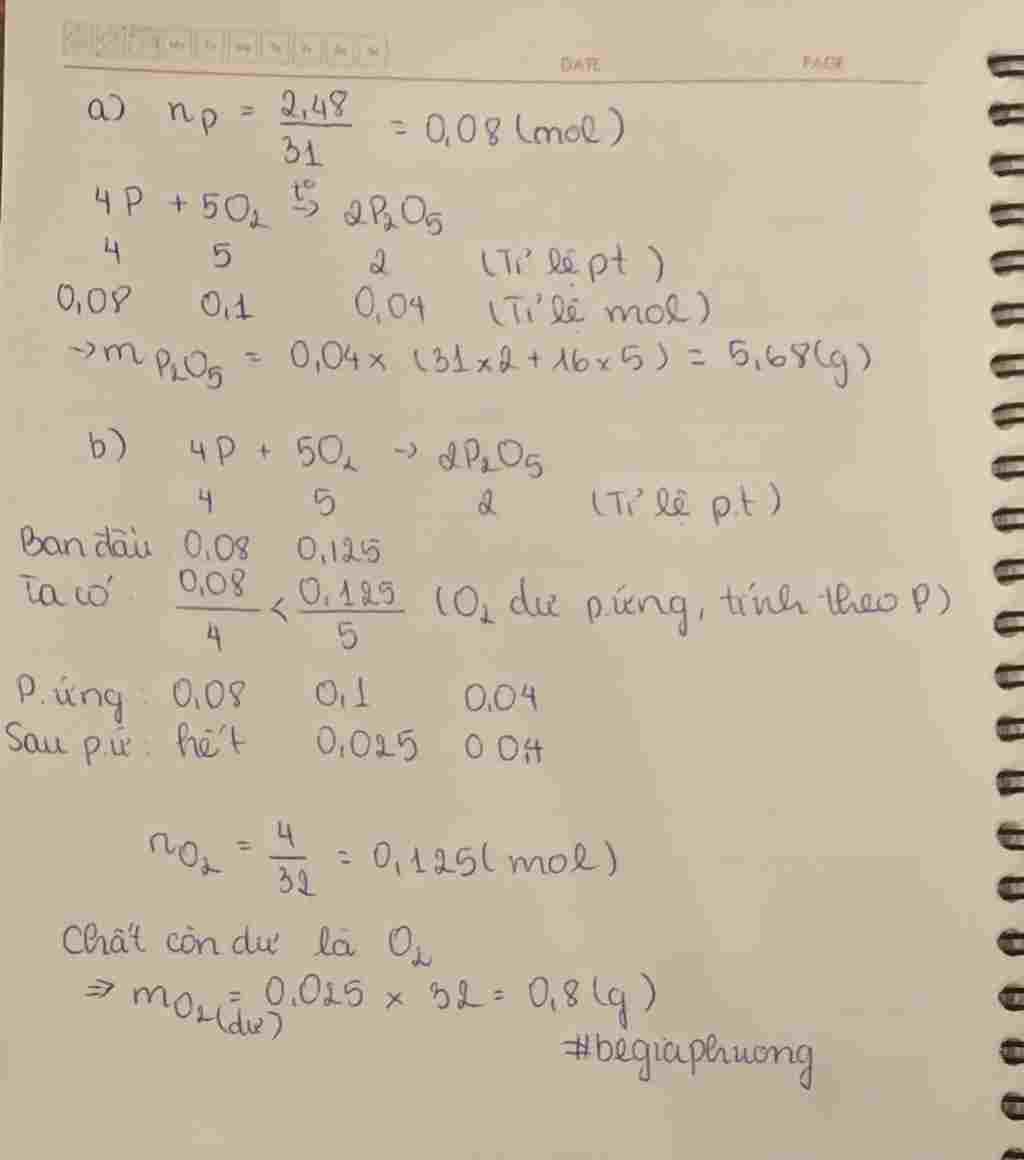 DATE PAGE
a) nP = 2,48/31 = 0,08 (mol)
4P + 5O₂ t°→ 2P₂O₅
4 5 2 (Tỉ lệ pt)
0,08 0,1 0,04 (Tỉ lệ mol)
→ mP₂O₅ = 0,04 × (31×2+16×5) = 5,68(g)
b) 4P + 5O₂ → 2P₂O₅
4 5 2 (Tỉ lệ p.t)
Ban đầu 0,08 0,125
Ta có: 0,08/4 < 0,125/5 (O₂ dư p.ứng, tính theo P)
P.ứng: 0,08 0,1 0,04
Sau p.ứ: hết 0,025 0,04
nO₂ = 4/32 = 0,125(mol)
Chất còn dư là O₂
⇒ mO₂(dư) = 0,025 × 32 = 0,8(g)
#begiaphuong